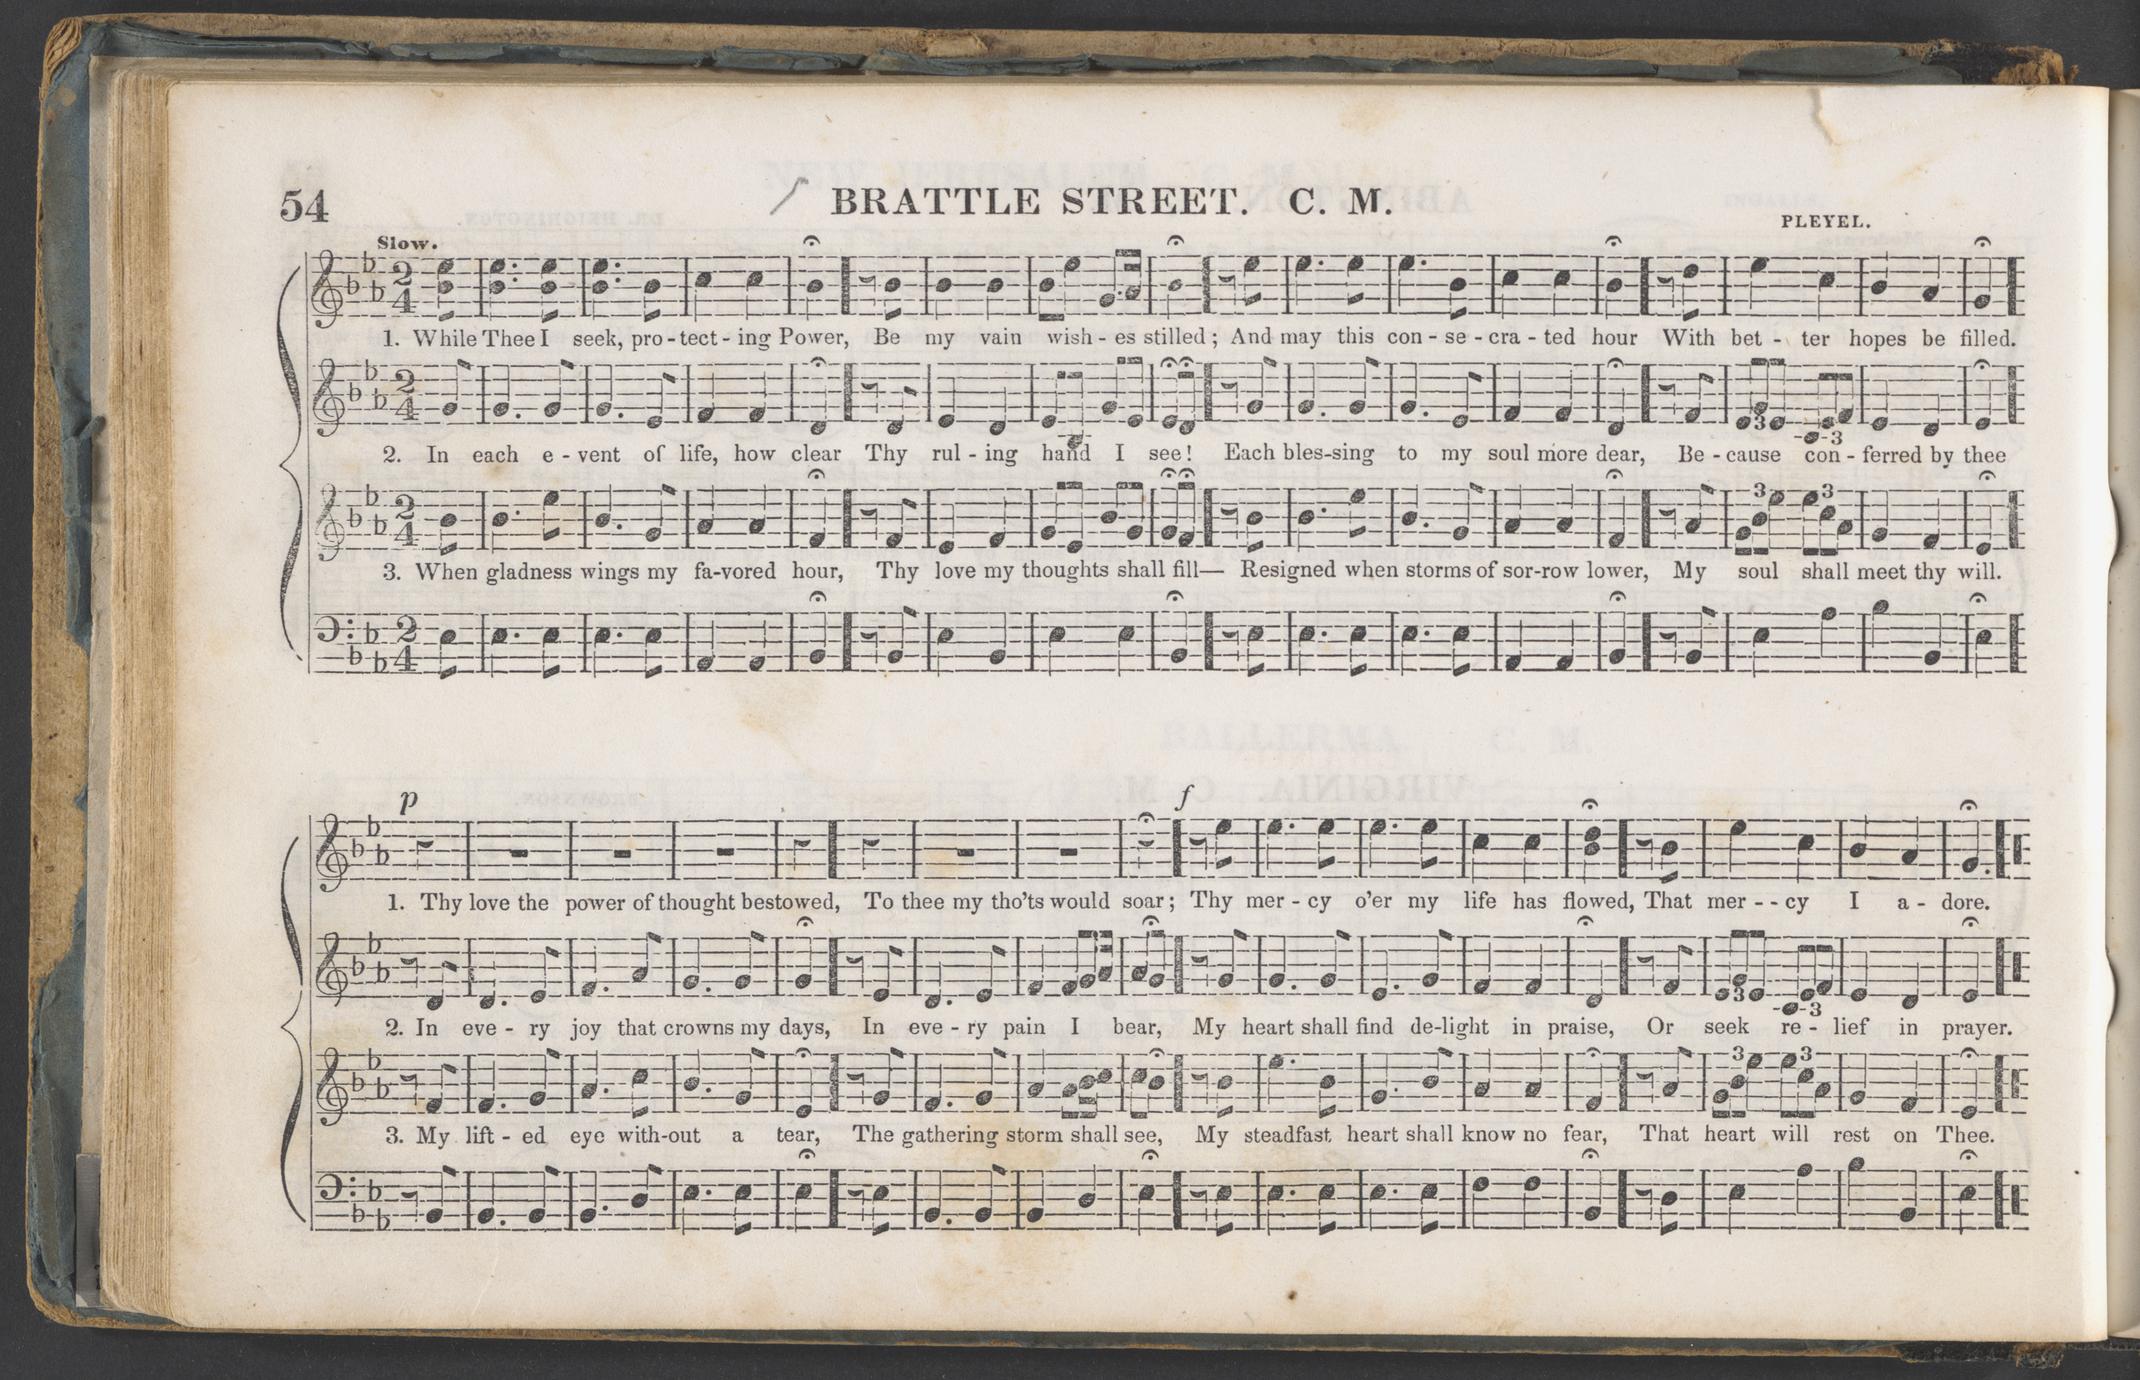 54
BRATTLE STREET. C. M.
PLEYEL.
Slow.
1. While Thee I seek, pro - tect - ing Power, Be my vain wish - es stilled; And may this con - se - cra - ted hour With bet - ter hopes be filled.
2. In each e - vent of life, how clear Thy rul - ing hand I see! Each bles-sing to my soul more dear, Be - cause con - ferred by thee
3. When gladness wings my fa-vored hour, Thy love my thoughts shall fill— Resigned when storms of sor-row lower, My soul shall meet thy will.
p f
1. Thy love the power of thought bestowed, To thee my tho'ts would soar; Thy mer - cy o'er my life has flowed, That mer - - cy I a - dore.
2. In eve - ry joy that crowns my days, In eve - ry pain I bear, My heart shall find de-light in praise, Or seek re - lief in prayer.
3. My lift - ed eye with-out a tear, The gathering storm shall see, My steadfast heart shall know no fear, That heart will rest on Thee.